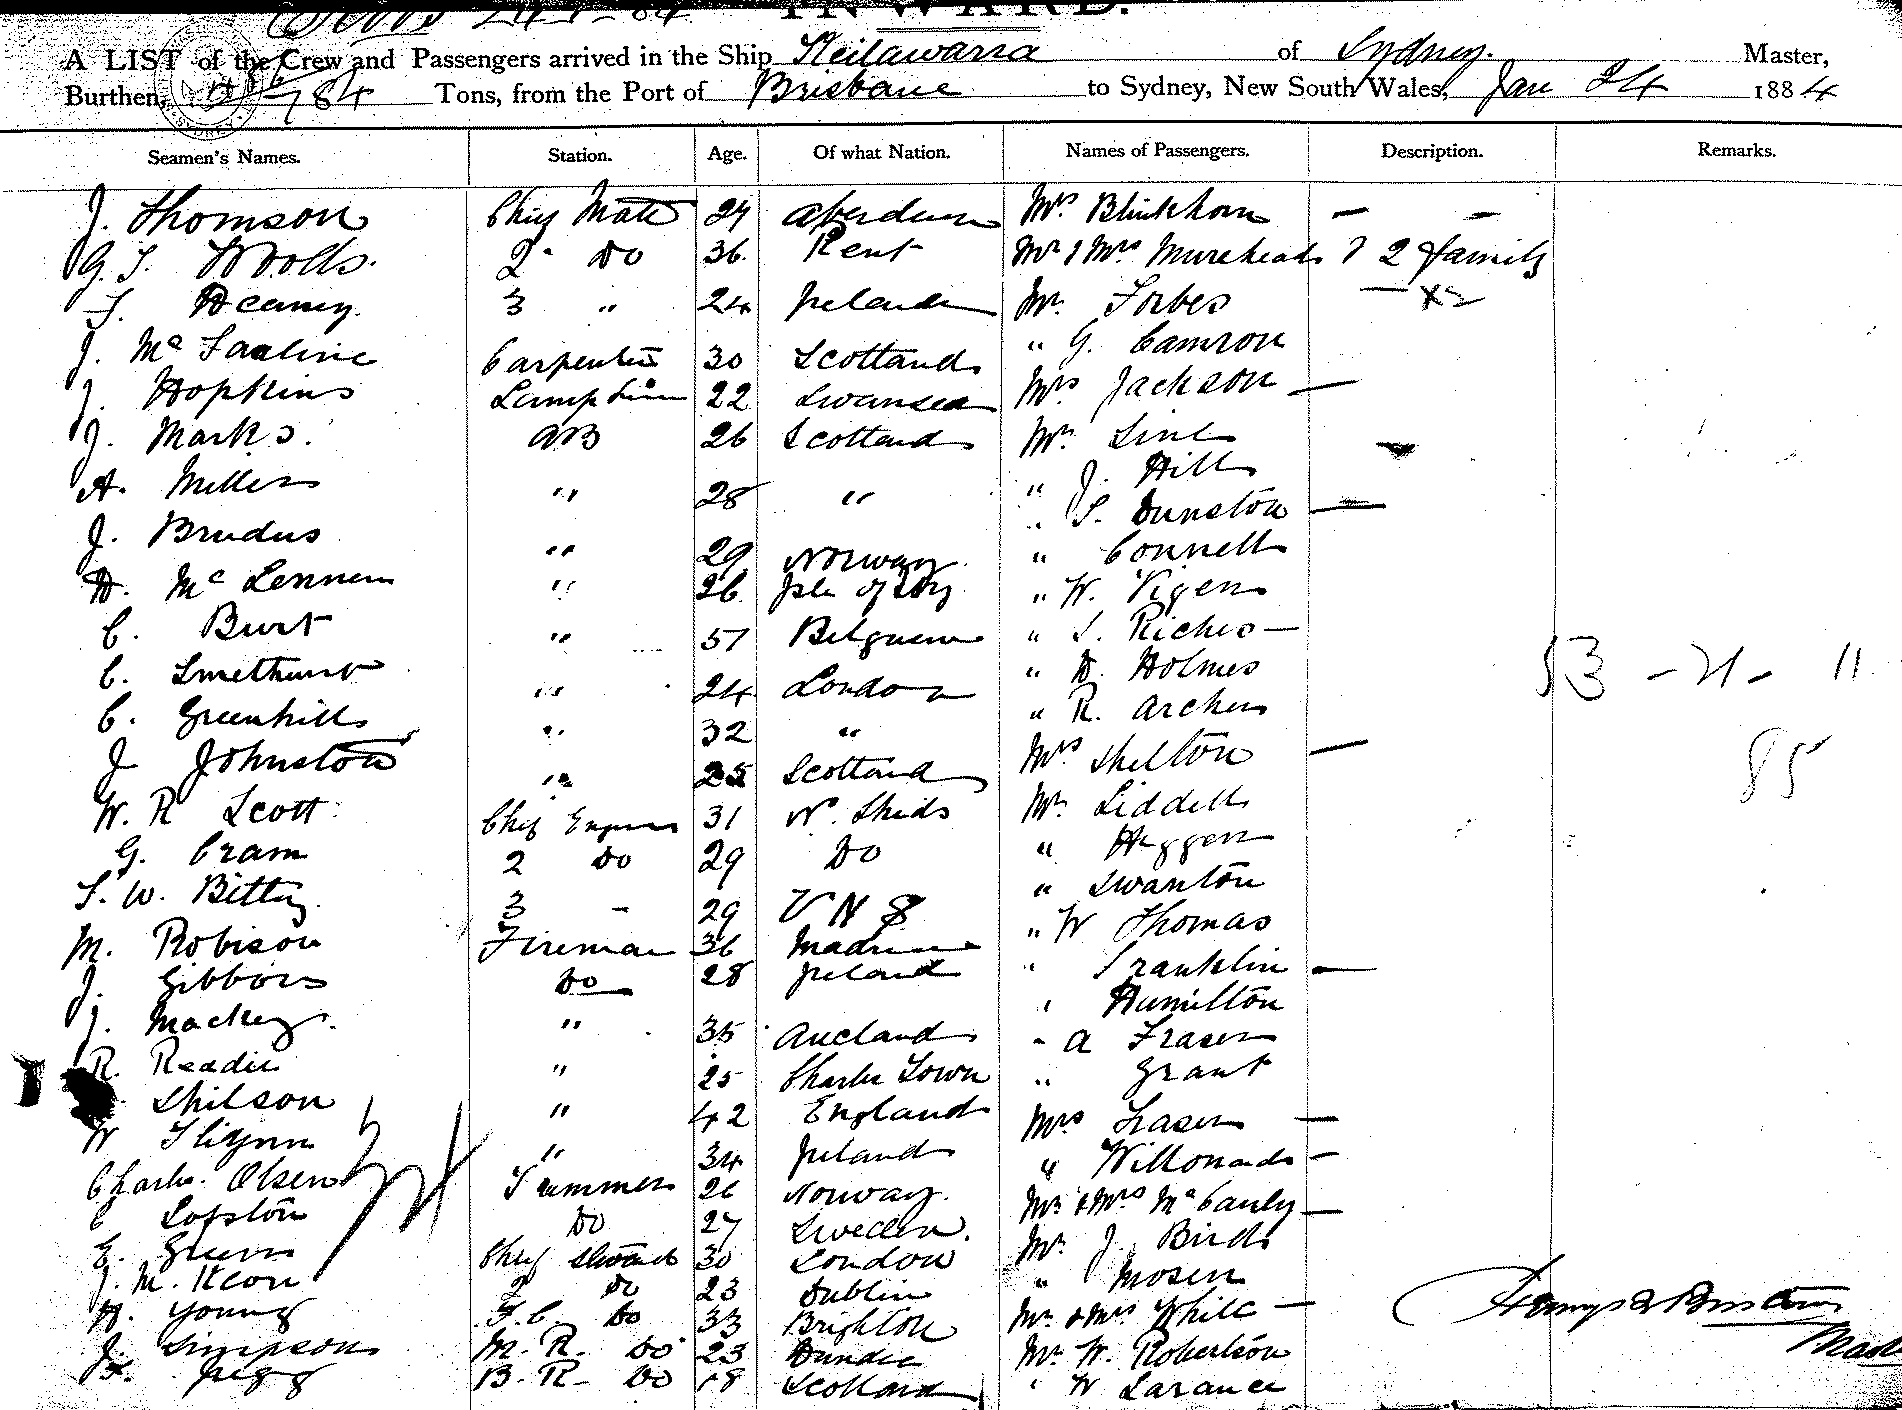 INWARD.
A LIST of the Crew and Passengers arrived in the Ship Keilawarra of Sydney. Master,
Burthen, Tons, from the Port of Brisbane to Sydney, New South Wales, Jan 24 1884
Seamen's Names. Station. Age. Of what Nation. Names of Passengers. Description. Remarks.
J. Thomson Chief Mate 27 Aberdeen Mrs Blinkhorn — —
G. S. Wools. 2 Do 36 Kent Mr & Mrs Murehead & 2 family
Heaney 3 " 24 Ireland Mr. Forbes — x2
J. Mc Farline Carpenter 30 Scotland " G. Camron
J. Hopkins Lamptrim 22 Swansea Mrs Jackson —
J. Marks. AB 26 Scotland Mr. Sine
A. Miller " 28 " " J. Hill
" Dunston —
J. Brudus " 29 Norway " Connell
Mc Lennen " 26 Isle of Sky " W. Vigen
C. Burt " 57 Belguem " S. Riches —
C. Smethurst " 24 London " H. Holmes
C. Greenhill " 32 " " R. Archer
53 - 21 - 11
J Johnston " 25 Scotland Mrs Shelton —
85
W. R Scott Chief Engineer 31 N. Sheds Mr. Liddell
G. Cram 2 Do 29 Do " Heggen
W. Bitty 3 - 29 " Swanton
M. Robison Fireman 36 " W Thomas
J. Gibbons Do 28 Ireland " Franklin —
J. Mackey " 35 Aucland " Hamilton
" A Fraser
R. Readie " 25 Charles Town " Grant
Shilson " 42 England Mrs Fraser —
W Flignn " 34 Ireland " —
Charles Olsen Trimmer 26 Norway. Mr & Mrs McCauly —
Lofston Do 27 Sweden. Mr. J. Bird
E. Green Chief Steward 30 London " Mosen
J. M. Keon 2 Do 23 Dublin Mr & Mrs White —
H. Young F. C. Do 33 Brighton
J. Simpson M. R. Do 23 Dundee Mr W. Robertson
Pegg B. R. Do 18 Scotland " W Larance